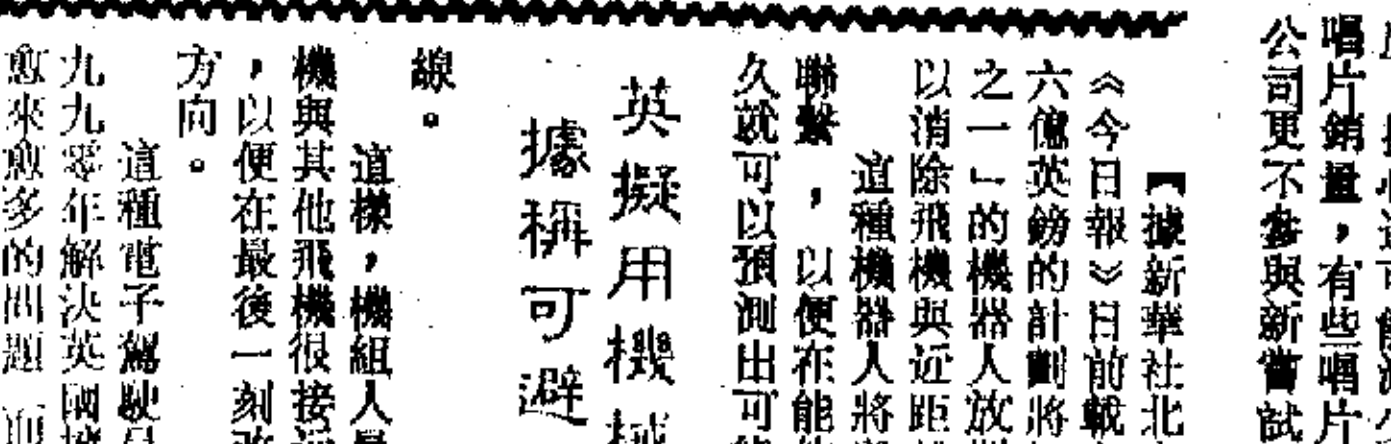 唱片銷量，有些唱片
公司更不參與新嘗試
【據新華社北
《今日報》日前載
六億英鎊的計劃將
之一」的機器人放
以消除飛機與近距
這種機器人將
聯繫，以便在能
久就可以預測出可
英擬用機械
據稱可避
線。
這樣，機組人員
機與其他飛機很接近
，以便在最後一刻改
方向。
這種電子駕駛員
九九零年解決英國
愈來愈多的問題